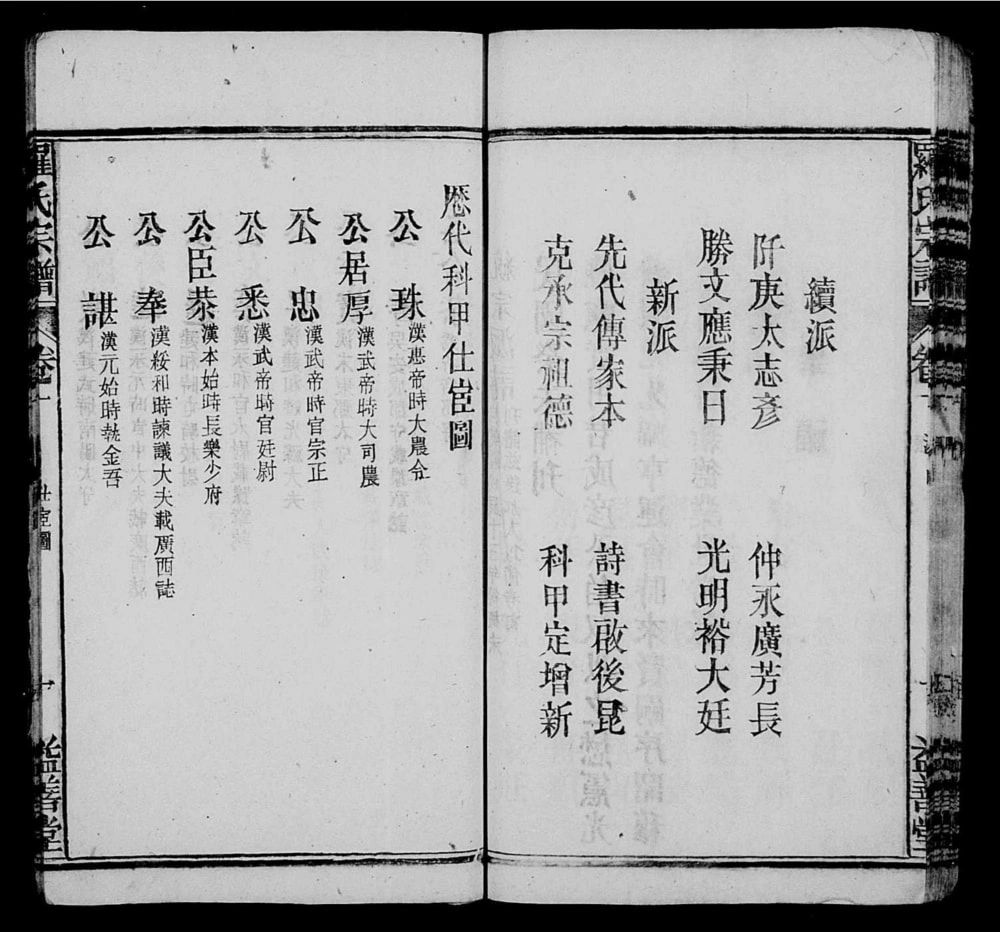 羅氏宗譜
卷
益善堂
續派
阡庚太志彥　仲永廣芳長
勝文應秉日　光明裕大廷
新派
先代傳家本　詩書啟後昆
克承宗祖德　科甲定增新
歷代科甲仕宦圖
公珠漢惠帝時大農令
公居厚漢武帝時大司農
公忠漢武帝時官宗正
公悉漢武帝時官廷尉
公臣恭漢本始時長樂少府
公奉漢綏和時諫議大夫載廣西誌
公諶漢元始時執金吾
羅氏宗譜
卷
仕宦圖
十
益善堂